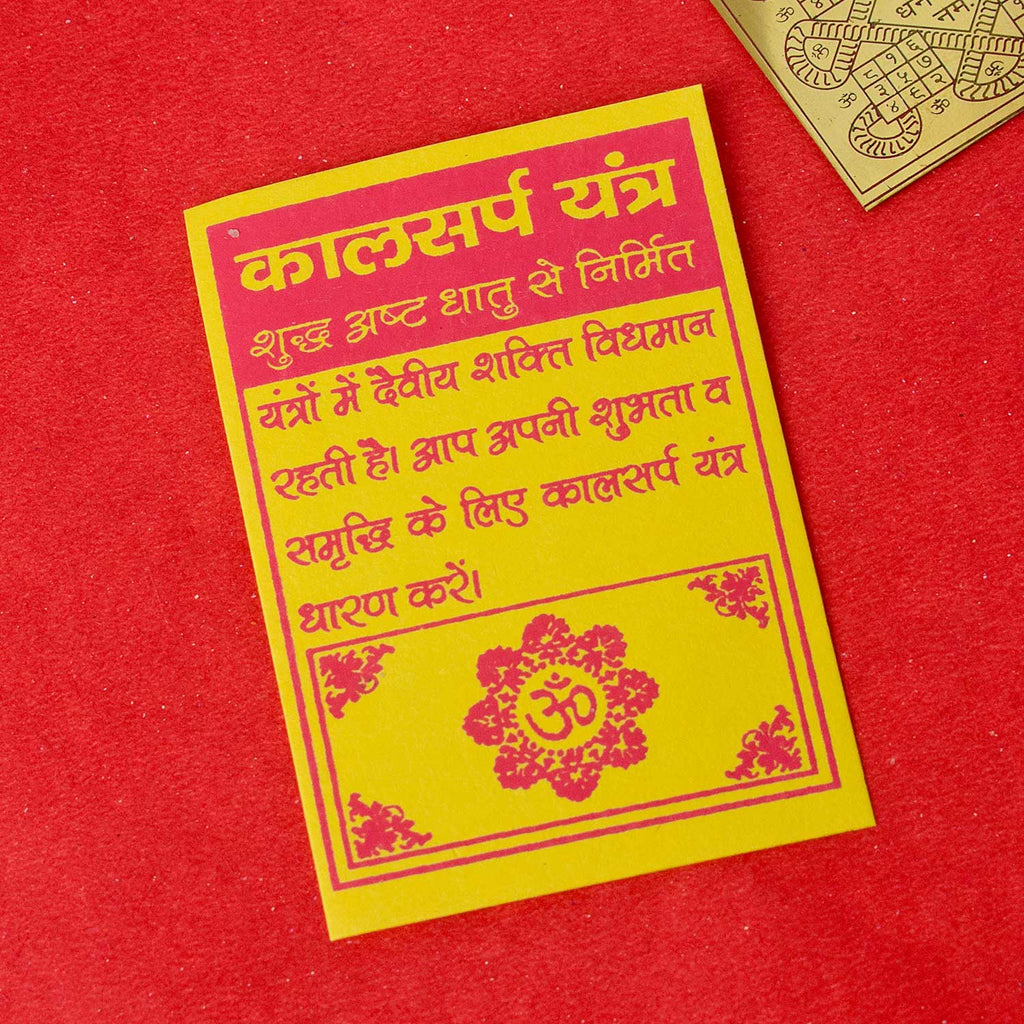 कालसर्प यंत्र
शुद्ध अष्ट धातु से निर्मित
यंत्रों में दैवीय शक्ति विधमान
रहती है। आप अपनी शुभता व
समृद्धि के लिए कालसर्प यंत्र
धारण करें।
ॐ